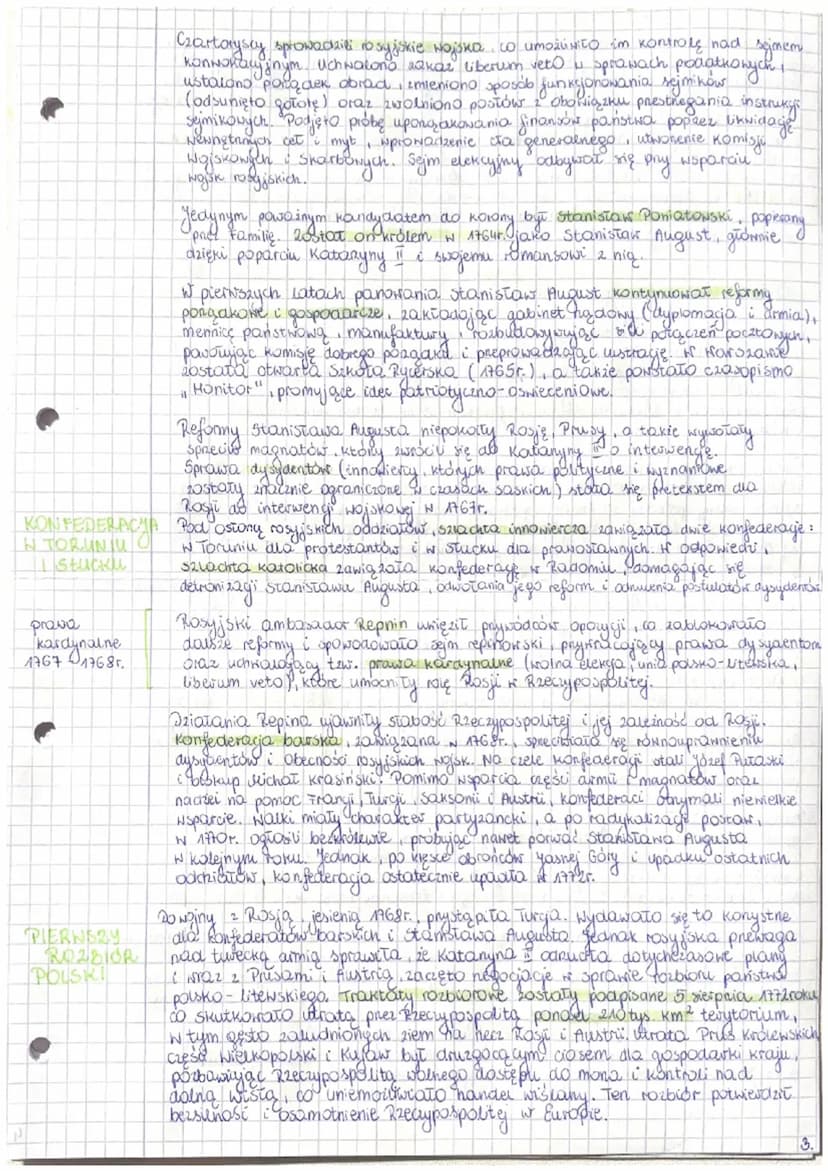 Czartoryscy sprowadzili rosyjskie wojska, co umożliwiło im kontrolę nad sejmem
konwokacyjnym. Uchwalono zakaz liberum veto w sprawach podatkowych,
ustalono porządek obrad, zmieniono sposób funkcjonowania sejmików
(odsunięto gołotę) oraz zwolniono posłów z obowiązku przestrzegania instrukcji
sejmikowych. Podjęto próbę uporządkowania finansów państwa poprzez likwidację
wewnętrznych ceł i myt, wprowadzenie cła generalnego, utworzenie komisji
Wojskowych i Skarbowych. Sejm elekcyjny odbywał się przy wsparciu
wojsk rosyjskich.
Jedynym poważnym kandydatem do korony był Stanisław Poniatowski, popierany
przez Familię. Został on królem w 1764r. jako Stanisław August, głównie
dzięki poparciu Katarzyny II i swojemu romansowi z nią.
W pierwszych latach panowania Stanisław August kontynuował reformy
porządkowe i gospodarcze, zakładając gabinet rządowy (dyplomacja i armia),
mennicę państwową, manufaktury, rozbudowywując połączeń pocztowych,
powołując komisję dobrego porządku i przeprowadzając lustrację. W Warszawie
została otwarta Szkoła Rycerska (1765r.), a także powstało czasopismo
"Monitor", promujące idee patriotyczno-oświeceniowe.
Reformy Stanisława Augusta niepokoiły Rosję, Prusy, a także wywołały
sprzeciw magnatów, który zwrócili się do Katarzyny II o interwencję.
Sprawa dysydentów (innowiercy, których prawa polityczne i wyznaniowe
zostały znacznie ograniczone w czasach saskich) stała się pretekstem dla
Rosji do interwencji wojskowej w 1767r.
KONFEDERACJA
W TORUNIU
I SŁUCKU
Pod osłoną rosyjskich oddziałów, szlachta innowiercza zawiązała dwie konfederacje:
w Toruniu dla protestantów i w Słucku dla prawosławnych. W odpowiedzi,
szlachta katolicka zawiązała konfederację w Radomiu, domagając się
detronizacji Stanisława Augusta, odwołania jego reform i odrzucenia postulatów dysydentów
prawa
kardynalne
1767 - 1768r.
Rosyjski ambasador Repnin uwięził przywódców opozycji, co zablokowało
dalsze reformy i spowodowało sejm repninowski, przywracający prawa dysydentom
oraz uchwalający tzw. prawa kardynalne (wolna elekcja, unia polsko-litewska,
liberum veto), które umocniły rolę Rosji w Rzeczypospolitej.
Działania Repina ujawniły słabość Rzeczypospolitej i jej zależność od Rosji.
Konfederacja barska, zawiązana w 1768r., sprzeciwiała się równouprawnieniu
dysydentów i obecności rosyjskich wojsk. Na czele konfederacji stali Józef Pułaski
i biskup Michał Krasiński. Pomimo wsparcia części armii i magnatów oraz
nadziei na pomoc Francji, Turcji, Saksonii i Austrii, konfederaci otrzymali niewielkie
wsparcie. Walki miały charakter partyzancki, a po radykalizacji postaw,
w 1770r. ogłosili bezkrólewie, próbując nawet porwać Stanisława Augusta
w kolejnym roku. Jednak, po klęsce obrońców Jasnej Góry i upadku ostatnich
oddziałów, konfederacja ostatecznie upadła w 1772r.
PIERWSZY
ROZBIÓR
POLSKI
Do wojny z Rosją, jesienią 1768r., przystąpiła Turcja. Wydawało się to korzystne
dla konfederatów barskich i Stanisława Augusta. Jednak rosyjska przewaga
nad turecką armią sprawiła, że Katarzyna II odrzuciła dotychczasowe plany
i wraz z Prusami i Austrią, zaczęto negocjacje w sprawie rozbioru państwa
polsko-litewskiego. Traktaty rozbiorowe zostały podpisane 5 sierpnia 1772roku
co skutkowało utratą przez Rzeczypospolitą ponad 210 tys. km² terytorium,
w tym gęsto zaludnionych ziem na rzecz Rosji i Austrii. Utrata Prus Królewskich
część Wielkopolski i Kujaw był druzgocącym ciosem dla gospodarki kraju,
pozbawiając Rzeczypospolitą wolnego dostępu do morza i kontroli nad
dolną Wisłą, co uniemożliwiało handel wiślany. Ten rozbiór potwierdził
bezsilność i osamotnienie Rzeczypospolitej w Europie.
3.